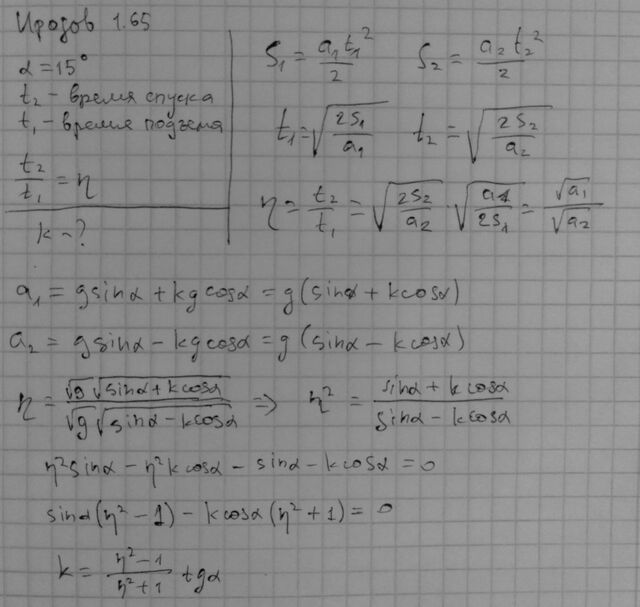 Иродов 1.65
α = 15°
t₂ - время спуска
t₁ - время подъема
t₂/t₁ = η
k - ?
S₁ = a₁t₁²/2 S₂ = a₂t₂²/2
t₁ = √(2S₁/a₁) t₂ = √(2S₂/a₂)
η = t₂/t₁ = √(2S₂/a₂) · √(a₁/2S₁) = √a₁/√a₂
a₁ = g sinα + kg cosα = g(sinα + k cosα)
a₂ = g sinα - kg cosα = g(sinα - k cosα)
η = √g √(sinα + k cosα)/√g √(sinα - k cosα) => η² = (sinα + k cosα)/(sinα - k cosα)
η² sinα - η² k cosα - sinα - k cosα = 0
sinα(η² - 1) - k cosα(η² + 1) = 0
k = (η² - 1)/(η² + 1) tgα